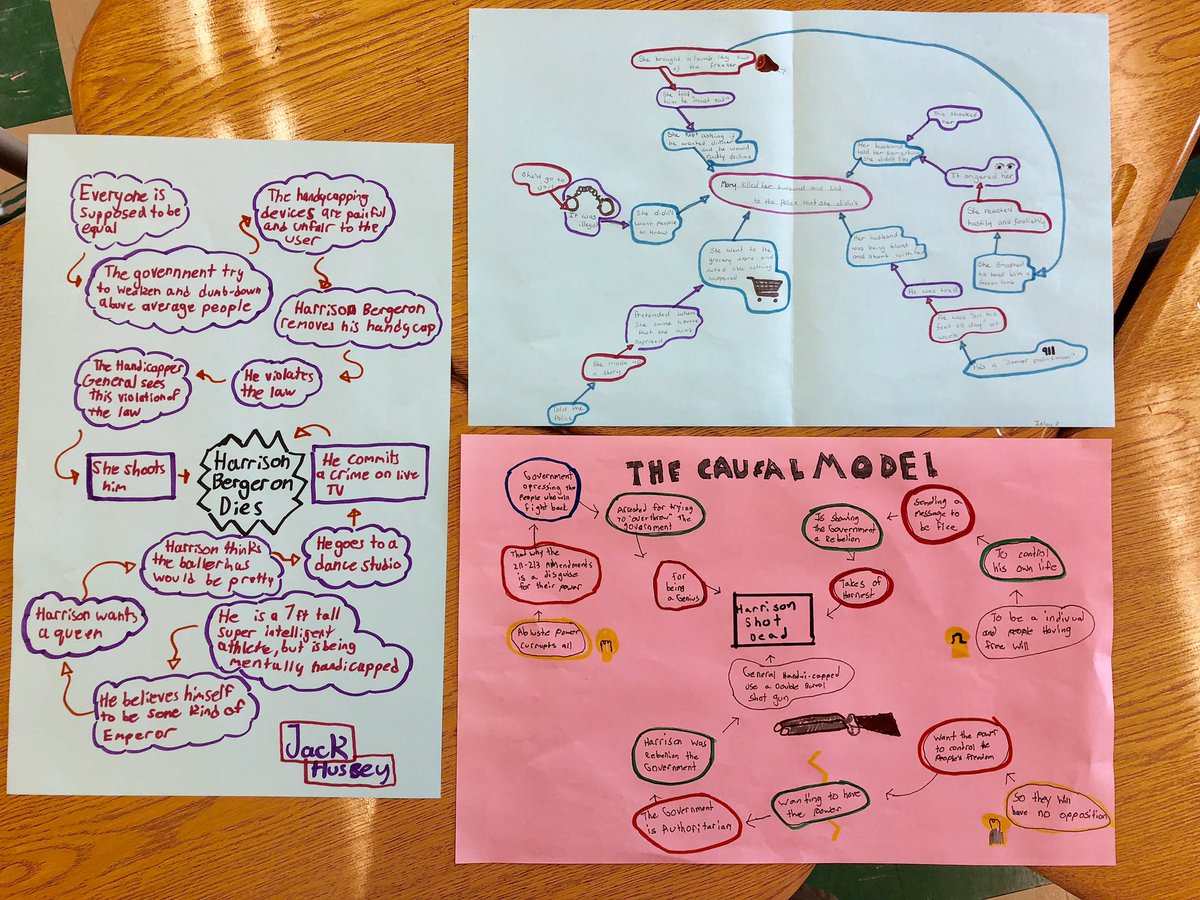 Everyone is
supposed to be
equal
The handycapping
devices are painful
and unfair to the
user
The government try
to weaken and dumb-down
above average people
Harrison Bergeron
removes his handycap
He violates
the law
The Handicapper
General sees
this violation of
the law
She shoots
him
Harrison
Bergeron
Dies
He commits
a crime on live
TV
Harrison thinks
the ballerinas
would be pretty
He goes to a
dance studio
Harrison wants
a queen
He is a 7ft tall
super intelligent
athlete, but is being
mentally handicapped
He believes himself
to be some kind of
Emperor
Jack
Hussey
She brought a lamb leg out
of the freezer
She told
him he "must eat"
She kept asking if
he wanted dinner
and he would
rudely decline
She'd go to
jail
It was
illegal
She didn't
want people
to know
Mary killed her husband and lied
to the police that she didn't
This shocked
her
Her husband
told her something
she didn't like
It angered her
She reacted
hastily and foolishly
She smashed
his head with a
frozen lamb
Her husband
was being blunt
and short with her
He was tired
He was "on his
feet all day" at
work
911
He's a "senior policeman"
She went to the
grocery store and
acted like nothing
happened
Pretended when
she came home
that she was
surprised
She made up
a story
Told the
Police
THE CAUSAL MODEL
Government
opressing the
People who win
fight back
Arrested for trying
to "overthrow" the
government
That why the
211-213 Amendments
is a disguise
for their power
For
being
a Genius
Abluste power
currupts all
Is showing
the Government
a Rebelion
Sending a
message to
be flee.
To control
his own life
Takes of
Harnest
To be a indivual
and people Having
free will
Harrison
Shot
Dead
General Handi-capped
use a Double Barval
Shot gun
Harrison was
Rebelion the
Government
The Government
is Authoritarian
Wanting to have
the power
Want the power
to control the
People's freedom
So they win
have no opposition